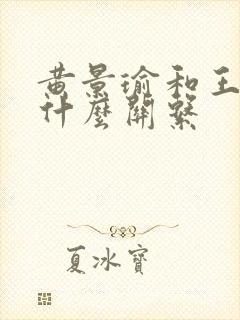 黄景瑜和王
什麼關繫
夏冰寶